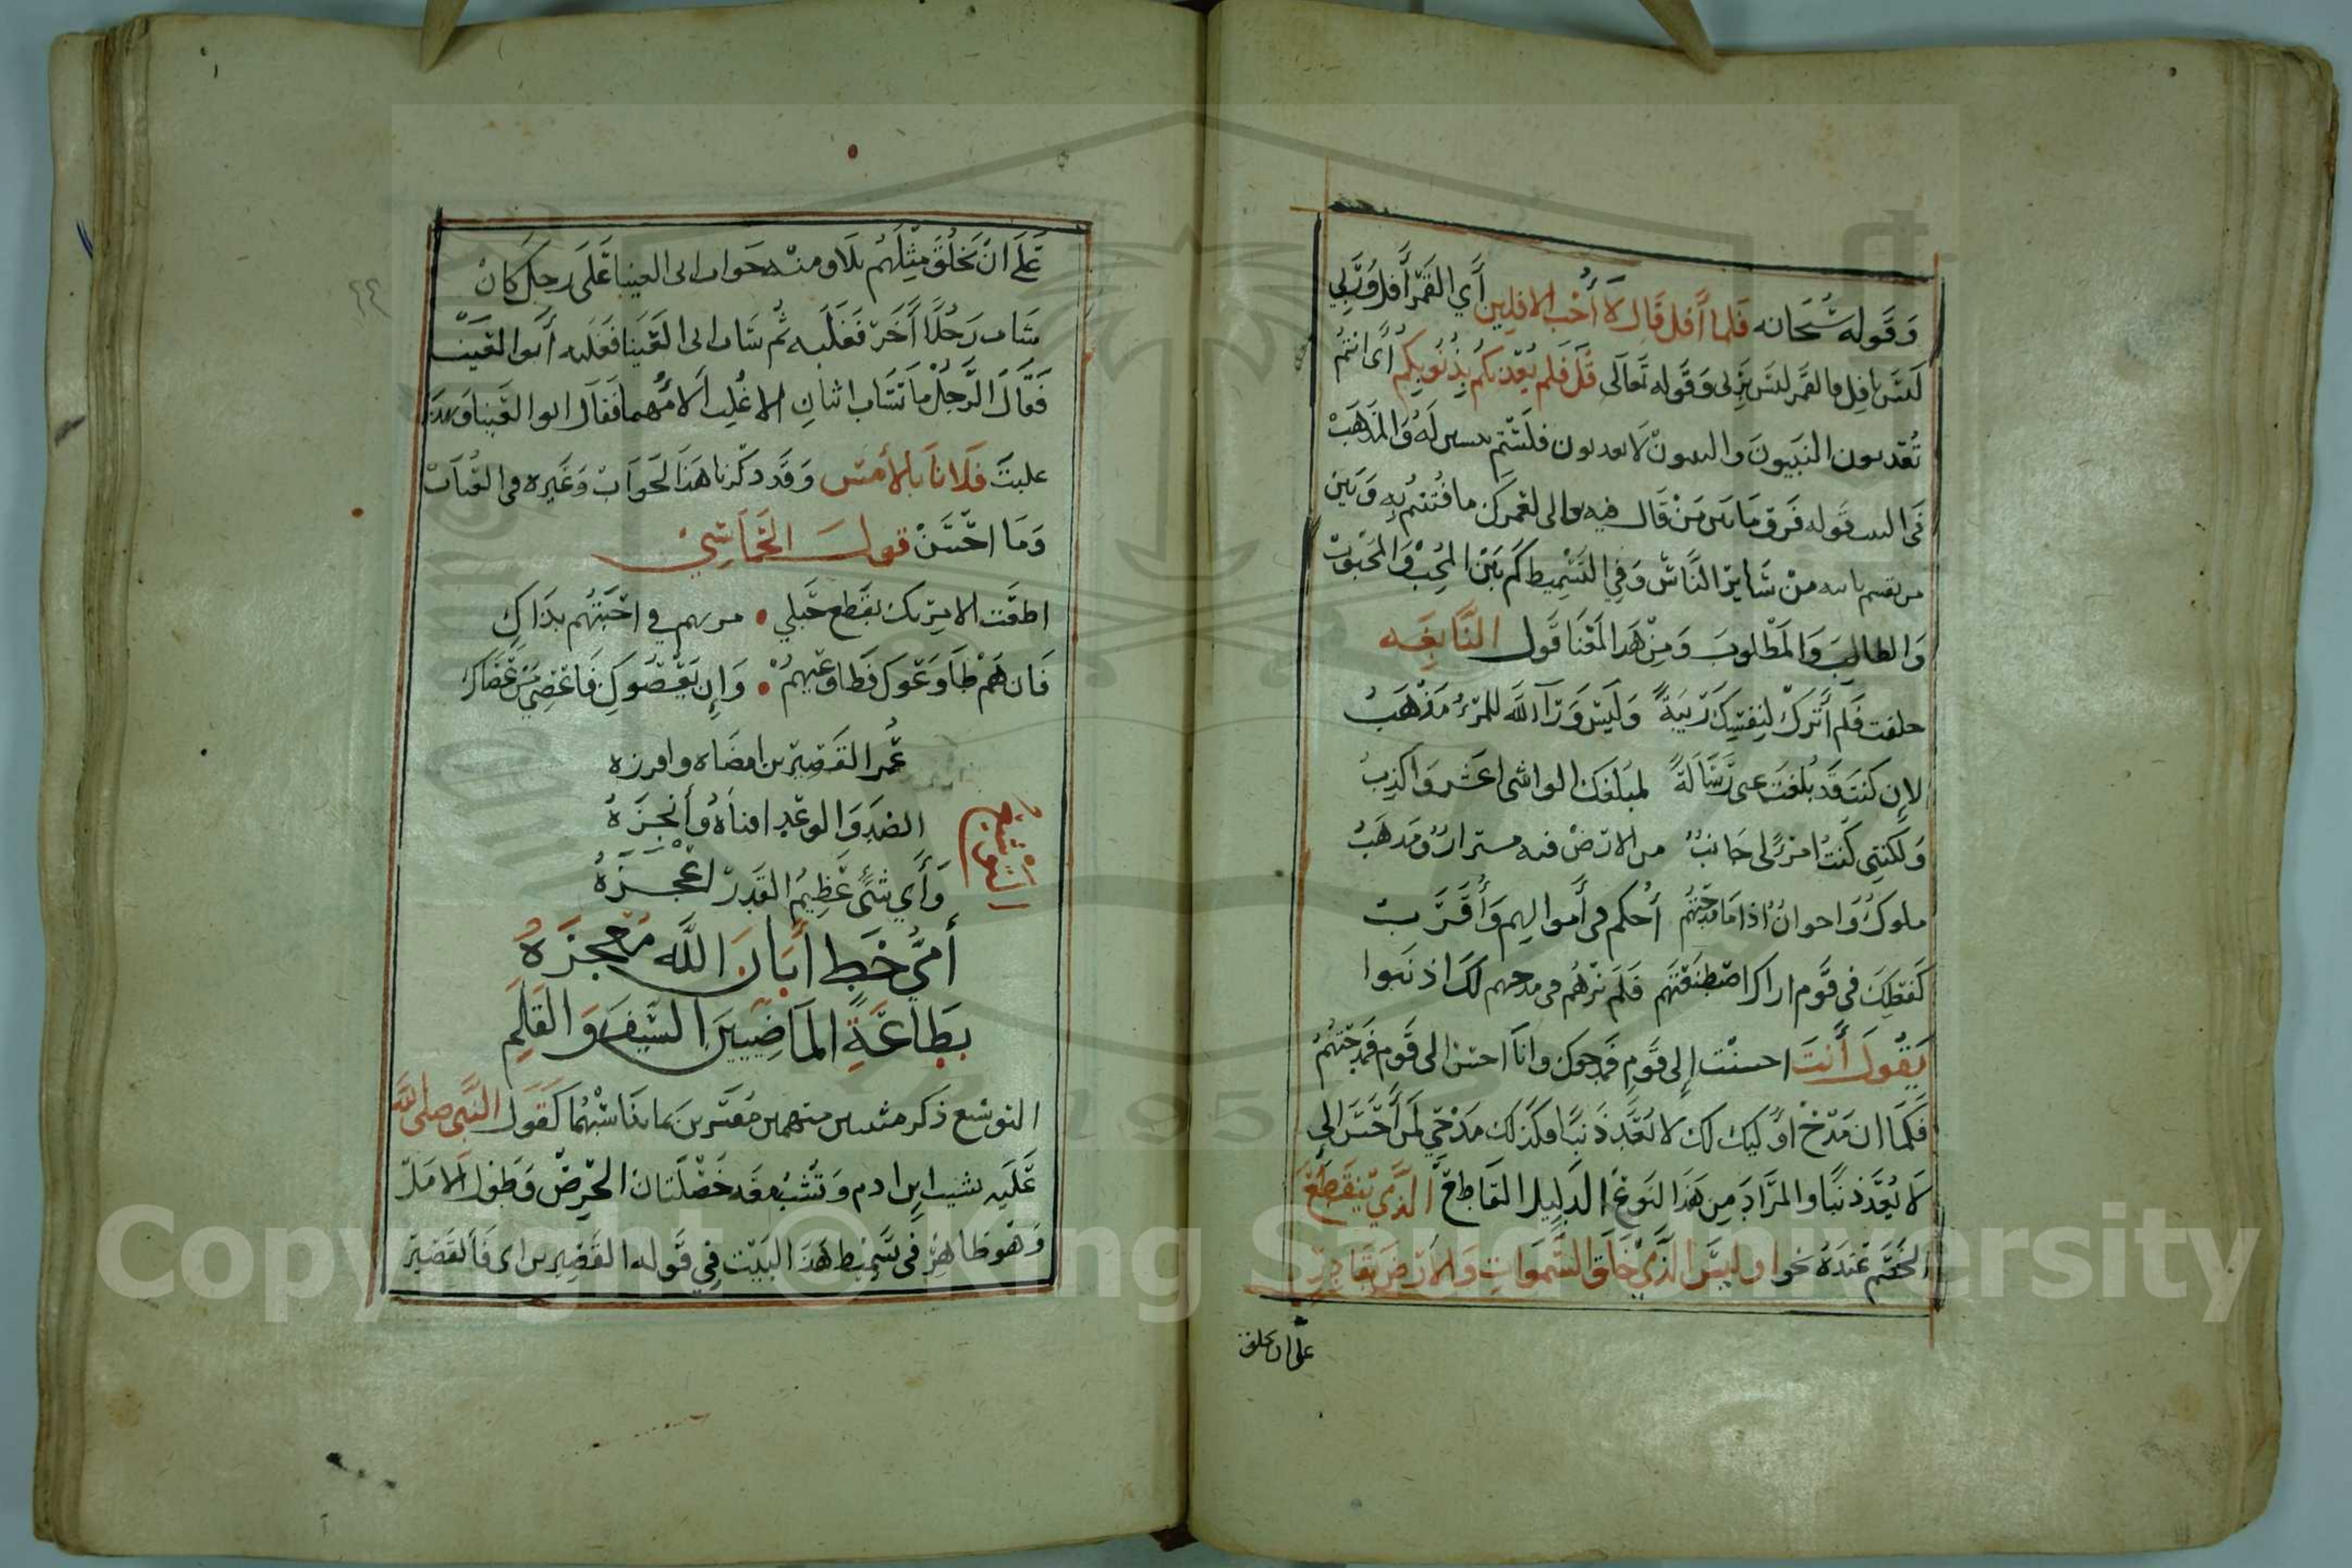 وَقَوله سُبْحَانه فَلما أَفل قَال لَا أُحب الافلين أَي القَمَر أَفل وَرَبِّي
لَيْسَ بافِل فالقمر ليسَ بِرَبي وَقَوله تَعَالَى قُل فَلِم يُعَذِّبكُم بِذُنُوبِكم أَى انتمُ
تُعَذبون البَنُون وَالبنونَ لَا يعذبون فلَسْتم ببنين لَهُ وَالمَذْهَبْ
في البيت قَوله فَرَق مَا بَين مَنْ قَال فيه وَبَيْن
من يقسم بالله مِنْ سَايرْ النَّاسْ وَفِي التَّسْمِيط كَمْ بَيْنَ المُحِبْ وَالمَحْبُوبْ
وَالطالِب وَالمَطْلوبَ وَمِنْ هَذا المَعْنَا قَول النَّابِغَه
حلفت فَلم أَترك لِنفسِكَ رِيبَةً وَلَيْسَ وَرَآ اللَّه للمَرْءِ مَذْهَبُ
لاِن كنتَ قَد بُلغتَ عنى رسَالَةً لمبُلغك الواشى اغَش وَاكذبُ
وَلكننِى كُنْتُ امْرءً لى جَانبٌ من الارَضْ فيه مسترادٌ ومَذهَبُ
ملوكٌ وَاخوانٌ اذا مَا مَدحَتهُم أُحكم فى أَموالهم وَأُقَرَّبُ
كَفعْلِكَ في قَوم اراكَ اصْطنَعْتهَم فلَم تَرَهُم فى مدحهم لكَ اذنبوا
يَقُول أَنتَ احسنْت إِلى قَوم فَمدحوك وانَا احسن الى قَوم فمَدحتهُم
فكَمَا ان مَدْحْ اوليك لك لا يُعَدّ ذَنبًا فكَذلك مَدْحِي لمَن أَحْسَنَ الىّ
لَا يُعَدّ ذنبًا والمرَاد مِن هَذا النوعْ الدلِيل القَاطِعْ الَّذي يَنقَطِعْ
الخَصْم عَنْدَهُ نحو اوليسَ الَّذي خَلَق السَّموَاتِ وَالاَرضَ بقَادِرٍ
على ان يخلق
عَلَى انْ يَخْلُقَ مِثْلَهُم بَلَا ومنه جَواب ابى العينا عَلَى رجل كَانْ
سَاب رَجُلًا أَخَرْ فَغَلَبه ثُم سَاب ابى العَينا فغلبه أَبوا العَينا
فَقَالَ الرَّجُل مَا تسَاب اثنان الا غُلِب الَامُهما فقَال ابوا العَينا وَبهذا
غلبتَ فلَانًا بالاَمْس وَقَد ذكَرنا هَذا الجَوابْ وَغَيره فى
وَمَا احْسَنْ قول الحْمَاسِيْ
اطعْت الامِريكِ بقَطع حَبلي • مريهم في احَبتهُم بذَاكِ
فَان هُمْ طَاوَعَوكِ فَطاوعيهمْ • وَاِن يَعْصُوكِ فَاعْصي مَنْ عَصَاكِ
عُمر القَصِيرين امضَاه وافرزه
الضدّ وَالوعْدِ افناهُ وأَنْجزَهُ
وَأَي شَىً عَظِيمُ القَدِرْ اعْجزَهُ
التوشيع
أُمِّيُ خَط أَبَانَ اللَّه مُعْجِزَهُ
بِطَاعَةِ المَاضِيَيْنِ السَّيْفِ وَالقَلَمِ
التوشيع ذكر مثنى مبهم مفسر بما يناسْبهُما كَقَول النَّبى صلى الله
عَلَيه يشيب ابن ادم وتَشُب معَه خَصْلَتان الحْرِصْ وَطول الامَلْ
وَهْوَ ظاهِرْ فى تَسْمِيط هَذا البَيْت فِي قَوله القَصِيرين اى فَالقَصِير